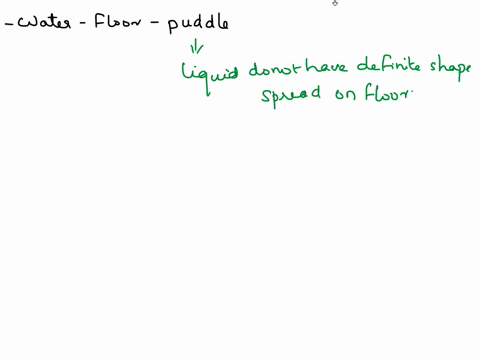 - Water - Floor - puddle
⇓
liquid donot have definite shape
spread on floor.